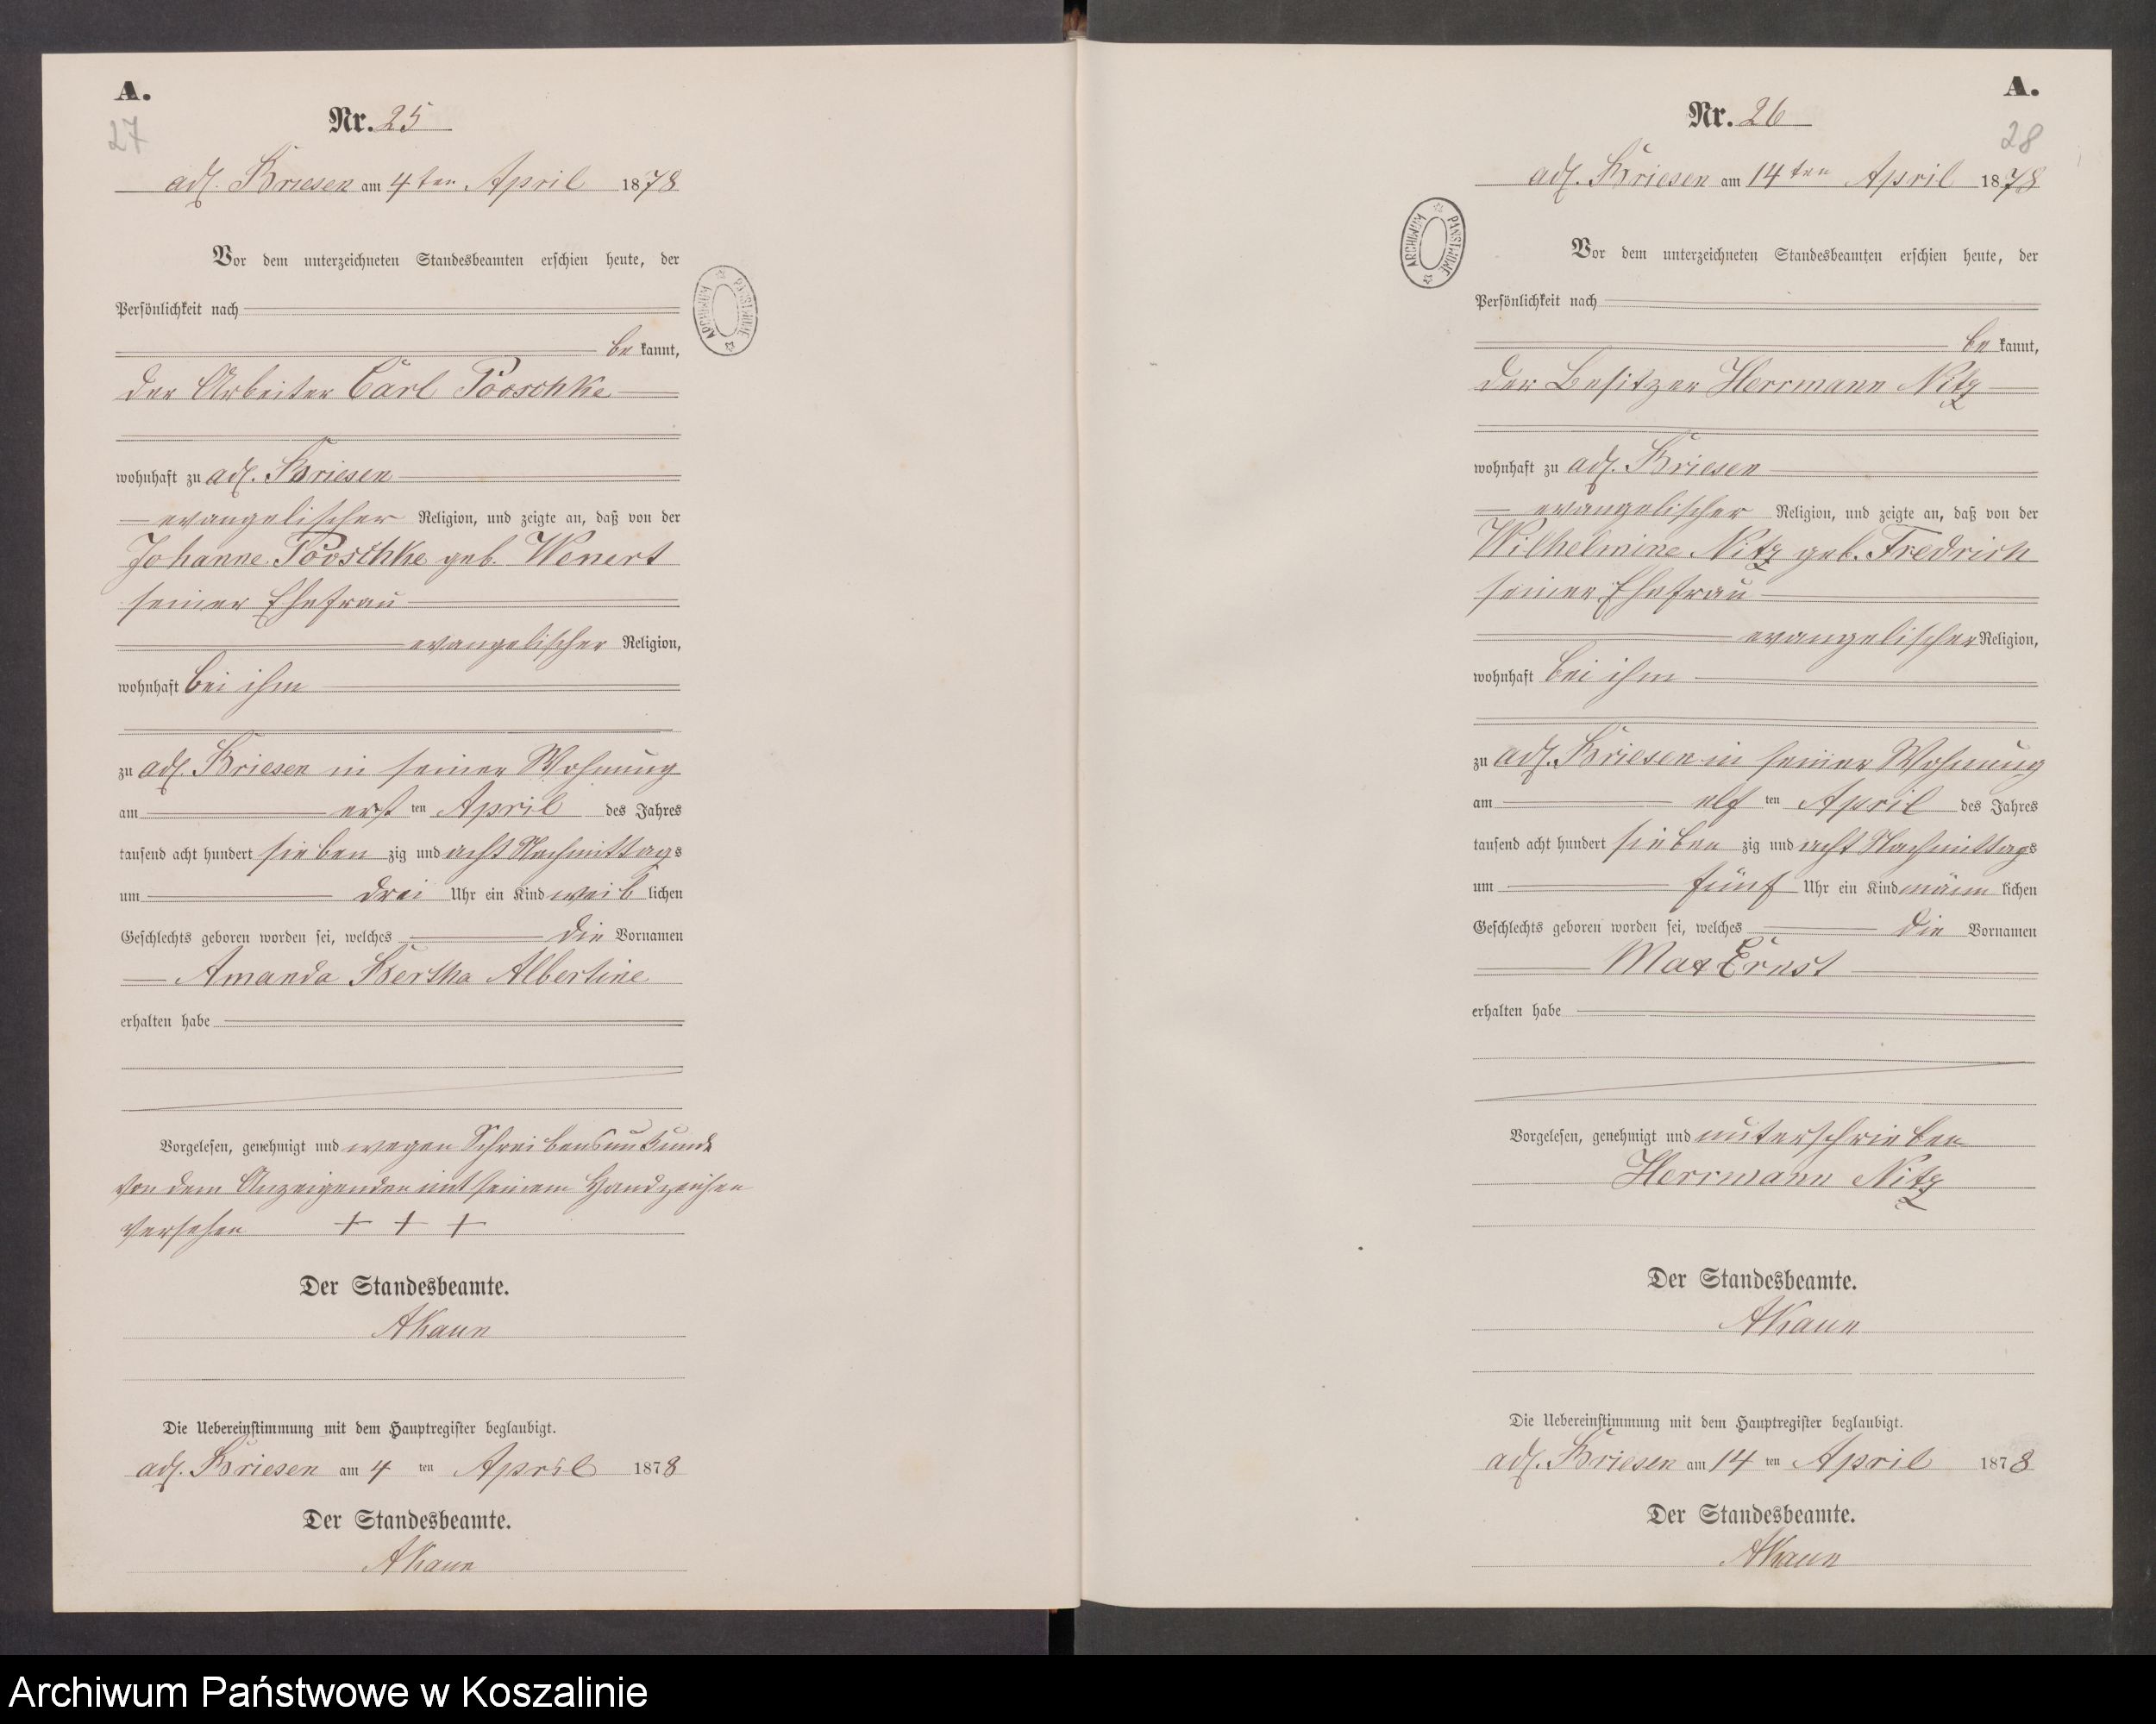 A.
27
Nr. 25
adl. Briesen am 4ten April 1878
Vor dem unterzeichneten Standesbeamten erschien heute, der
Persönlichkeit nach
be kannt,
der Arbeiter Carl Pooschke
wohnhaft zu adl. Briesen
evangelischer Religion, und zeigte an, daß von der
Johanne Pooschke geb. Wenert
seiner Ehefrau
evangelischer Religion,
wohnhaft bei ihm
zu adl. Briesen in seiner Wohnung
am erst ten April des Jahres
tausend acht hundert sieben zig und acht Nachmittags
um drei Uhr ein Kind weib lichen
Geschlechts geboren worden sei, welches die Vornamen
Amanda Bertha Albertine
erhalten habe
Vorgelesen, genehmigt und wegen Schreibensunkunde
von dem Anzeigenden mit seinem Handzeichen
versehen + + +
Der Standesbeamte.
AKaun
Die Uebereinstimmung mit dem Hauptregister beglaubigt.
adl. Briesen am 4 ten April 1878
Der Standesbeamte.
AKaun
ARCHIWUM PAŃSTWOWE
A.
28
Nr. 26
adl. Briesen am 14ten April 1878
ARCHIWUM PAŃSTWOWE
Vor dem unterzeichneten Standesbeamten erschien heute, der
Persönlichkeit nach
be kannt,
der Besitzer Herrmann Nitz
wohnhaft zu adl. Briesen
evangelischer Religion, und zeigte an, daß von der
Wilhelmine Nitz geb. Fredrich
seiner Ehefrau
evangelischer Religion,
wohnhaft bei ihm
zu adl. Briesen in seiner Wohnung
am elf ten April des Jahres
tausend acht hundert sieben zig und acht Nachmittags
um fünf Uhr ein Kind männ lichen
Geschlechts geboren worden sei, welches die Vornamen
Max Ernst
erhalten habe
Vorgelesen, genehmigt und unterschrieben
Herrmann Nitz
Der Standesbeamte.
AKaun
Die Uebereinstimmung mit dem Hauptregister beglaubigt.
adl. Briesen am 14 ten April 1878
Der Standesbeamte.
AKaun
Archiwum Państwowe w Koszalinie